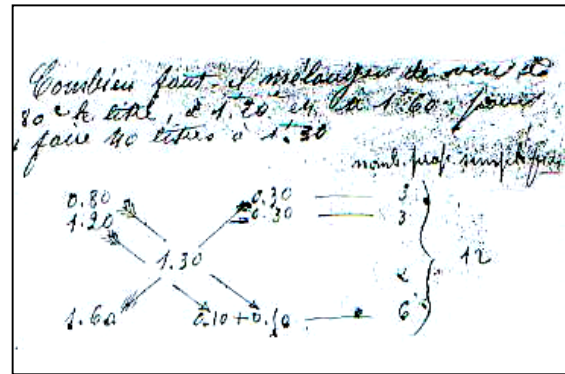 Combien faut-il mélanger de vin à
80c le litre, à 1f20, et à 1f60, pour
faire 40 litres à 1f30
nomb. prop. simplifiés
0.80 0.30 3
1.20 0.30 3
1.30 12
1.60 0.10+0.50 6